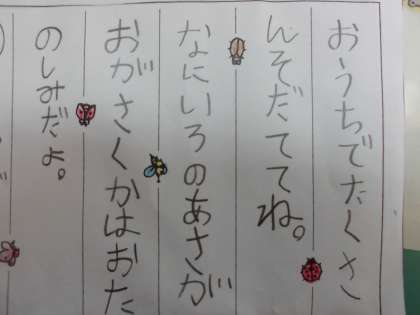 おうちでたくさ
んそだててね。
なにいろのあさが
おがさくかはおた
のしみだよ。